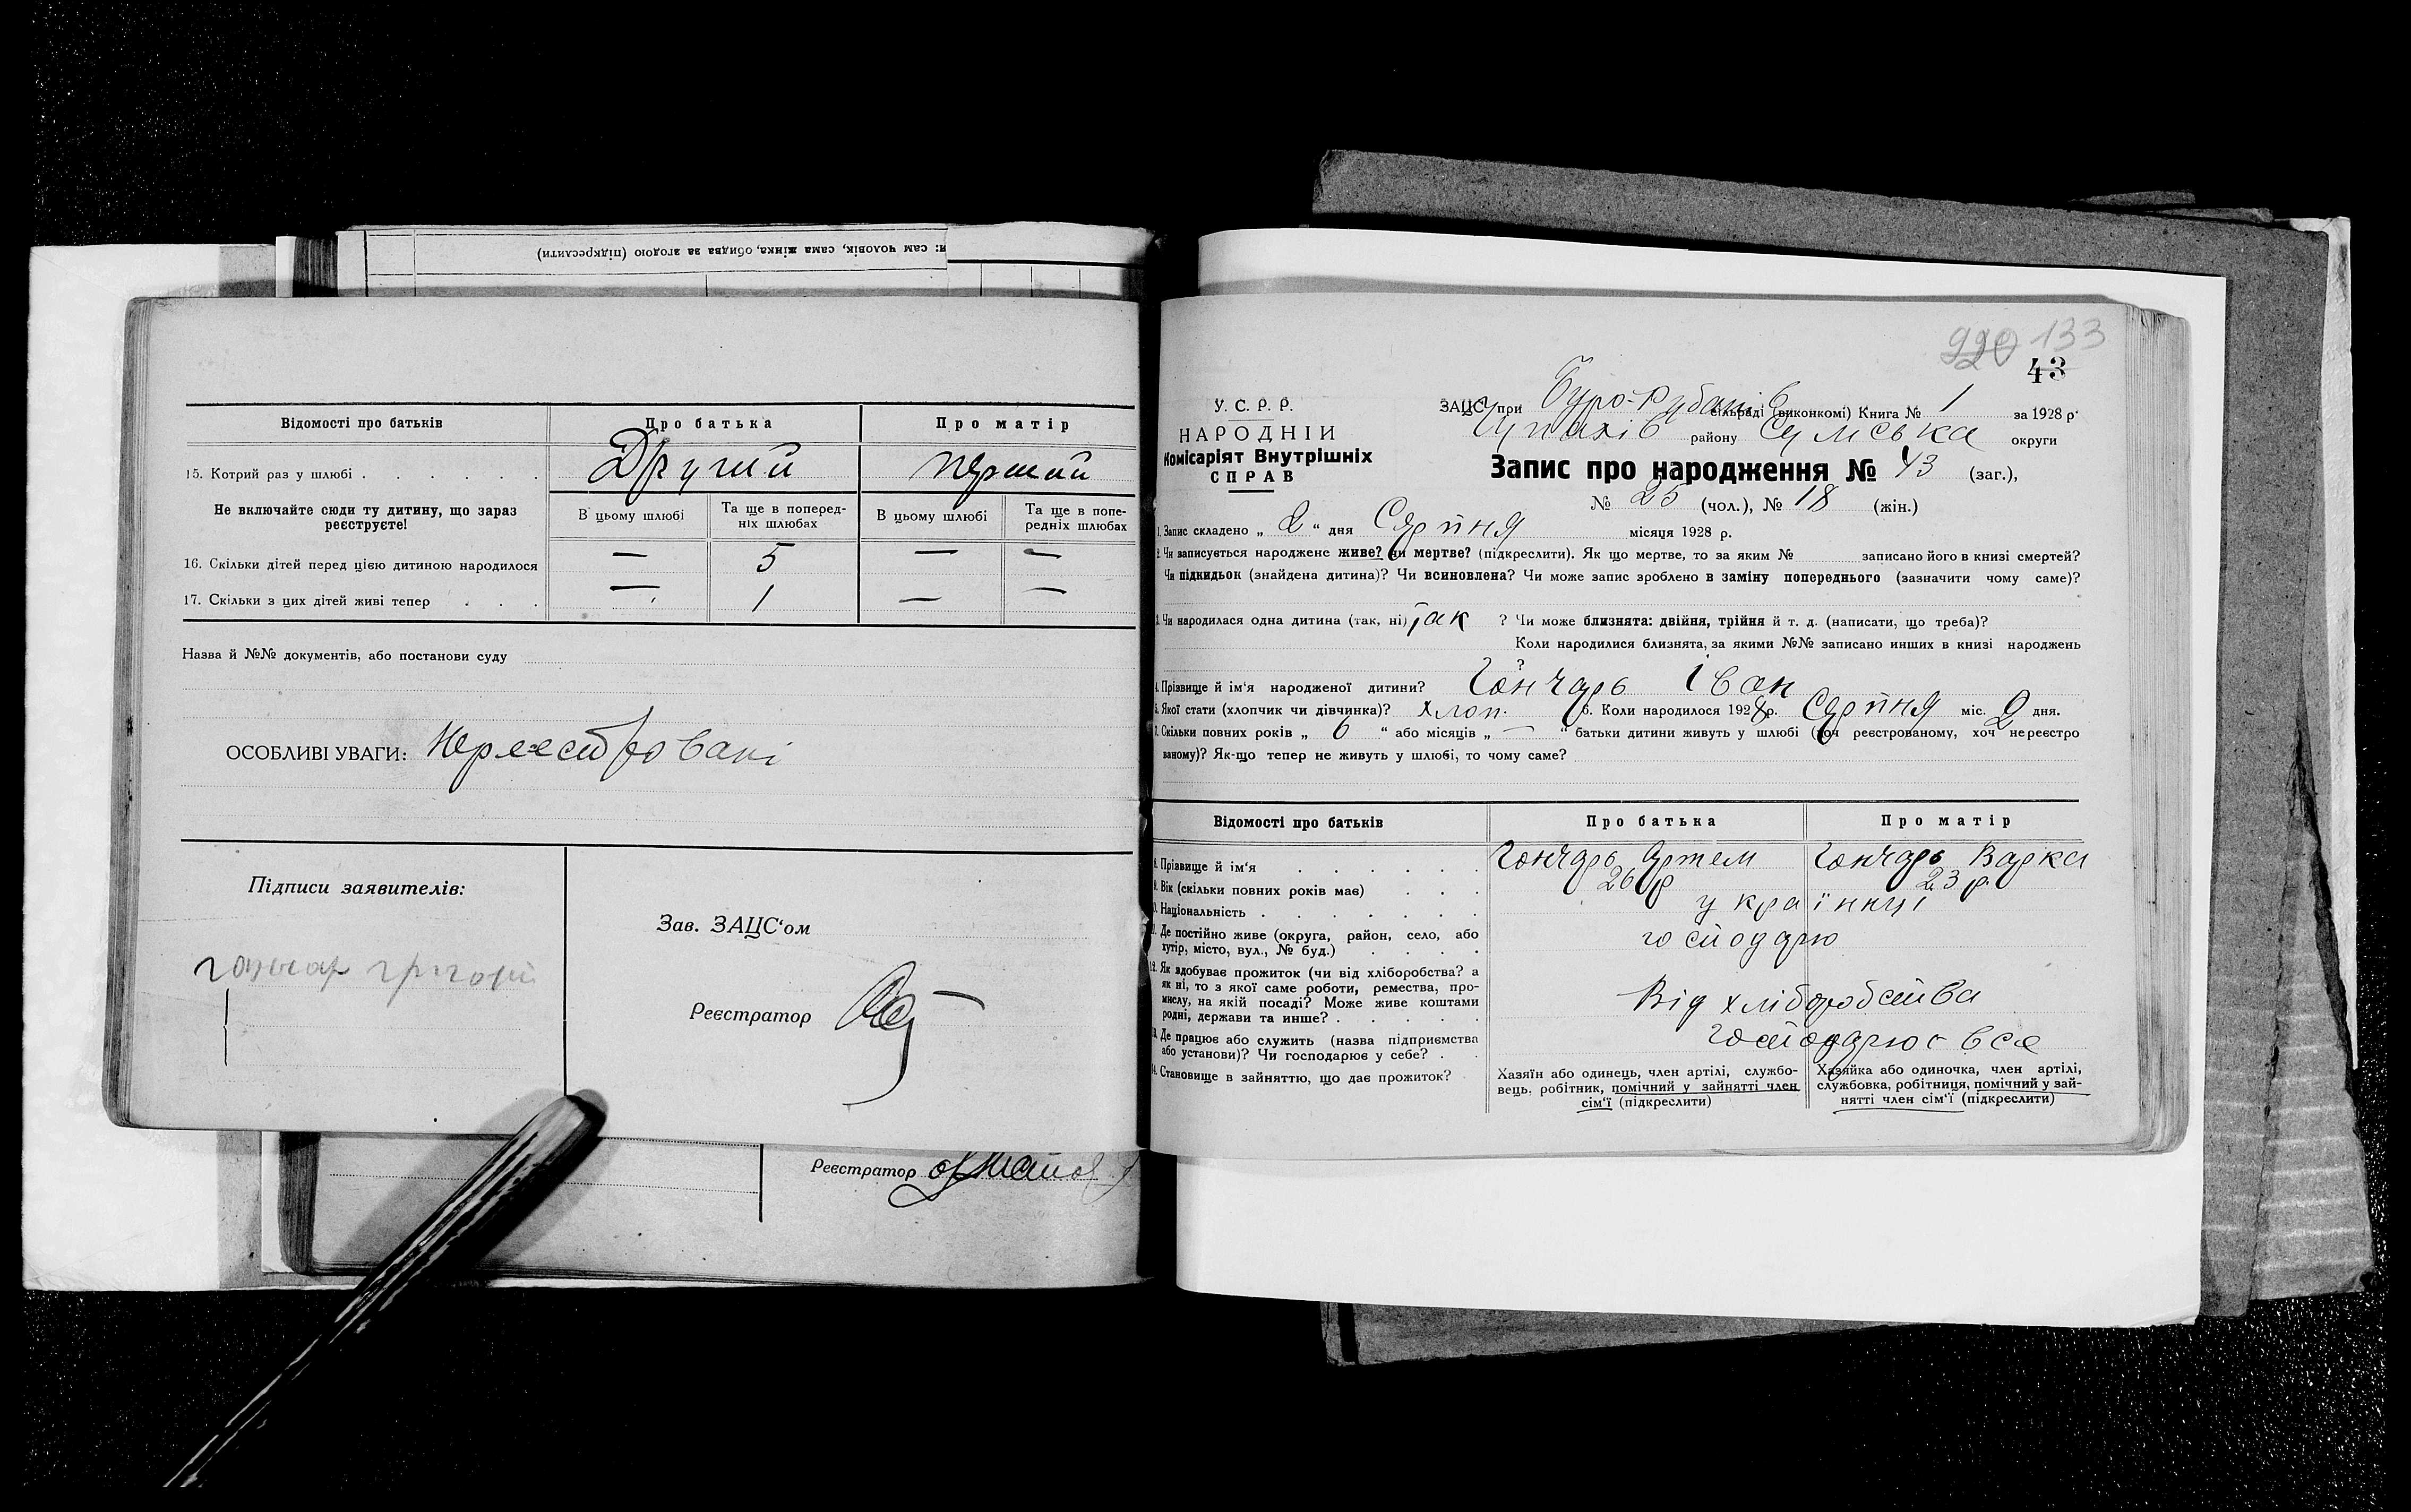 и: сам чоловік, сама жінка, обидва за згодою (підкреслити)
Відомості про батьків
Про батька
Про матір
15. Котрий раз у шлюбі . . . . . .
Другий
перший
Не включайте сюди ту дитину, що зараз реєструєте!
В цьому шлюбі
Та ще в поперед-
ніх шлюбах
В цьому шлюбі
Та ще в попе-
редніх шлюбах
16. Скільки дітей перед цією дитиною народилося
— 5 — —
17. Скільки з цих дітей живі тепер . . .
— 1 — —
Назва й №№ документів, або постанови суду
ОСОБЛИВІ УВАГИ:
Підписи заявителів:
Зав. ЗАЦС‘ом
Реєстратор
Реєстратор
220 133
43
У. С. Р. Р.
НАРОДНІЙ
Комісаріят Внутрішніх
СПРАВ
ЗАЦС при сільраді (виконкомі) Книга № 1 за 1928 р.
району Сумська округи
Запис про народження № 43 (заг.),
№ 25 (чол.), № 18 (жін.)
1. Запис складено „ 2 “ дня Серпня місяця 1928 р.
2. Чи записується народжене живе? чи мертве? (підкреслити). Як що мертве, то за яким № записано його в книзі смертей?
Чи підкидьок (знайдена дитина)? Чи всиновлена? Чи може запис зроблено в заміну попереднього (зазначити чому саме)?
3. Чи народилася одна дитина (так, ні) так ? Чи може близнята: двійня, трійня й т. д. (написати, що треба)?
Коли народилися близнята, за якими №№ записано инших в книзі народжень
?
4. Прізвище й ім‘я народженої дитини? Гончарь Іван
5. Якої стати (хлопчик чи дівчинка)? хлоп. 6. Коли народилося 1928 р. Серпня міс. 2 дня.
7. Скільки повних років „ 6 “ або місяців „ — “ батьки дитини живуть у шлюбі (хоч реєстрованому, хоч нереєстро
ваному)? Як-що тепер не живуть у шлюбі, то чому саме?
Відомості про батьків
Про батька
Про матір
8. Прізвище й ім‘я . . . . . .
Гончарь Артем
Гончарь Варка
9. Вік (скільки повних років має) . . .
26 р
23 р.
10. Національність . . . . . . .
українці
11. Де постійно живе (округа, район, село, або
хутір, місто, вул., № буд.) . . . .
12. Як здобуває прожиток (чи від хліборобства? а
як ні, то з якої саме роботи, ремества, про-
мислу, на якій посаді? Може живе коштами
родні, держави та инше? . . . . .
Від хліборобства
13. Де працює або служить (назва підприємства
або установи)? Чи господарює у себе? . .
14. Становище в зайняттю, що дає прожиток?
Хазяїн або одинець, член артілі, службо-
вець, робітник, помічний у зайнятті член
сім‘ї (підкреслити)
Хазяйка або одиночка, член артілі,
службовка, робітниця, помічний у зай-
нятті член сім‘ї (підкреслити)